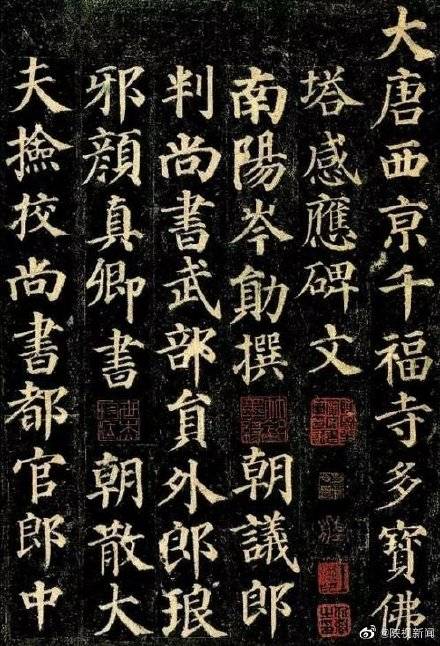 大唐西京千福寺多寶佛
塔感應碑文
南陽岑勛撰 朝議郎
判尚書武部員外郎琅
邪顏真卿書 朝散大
夫撿挍尚書都官郎中
@陕视新闻